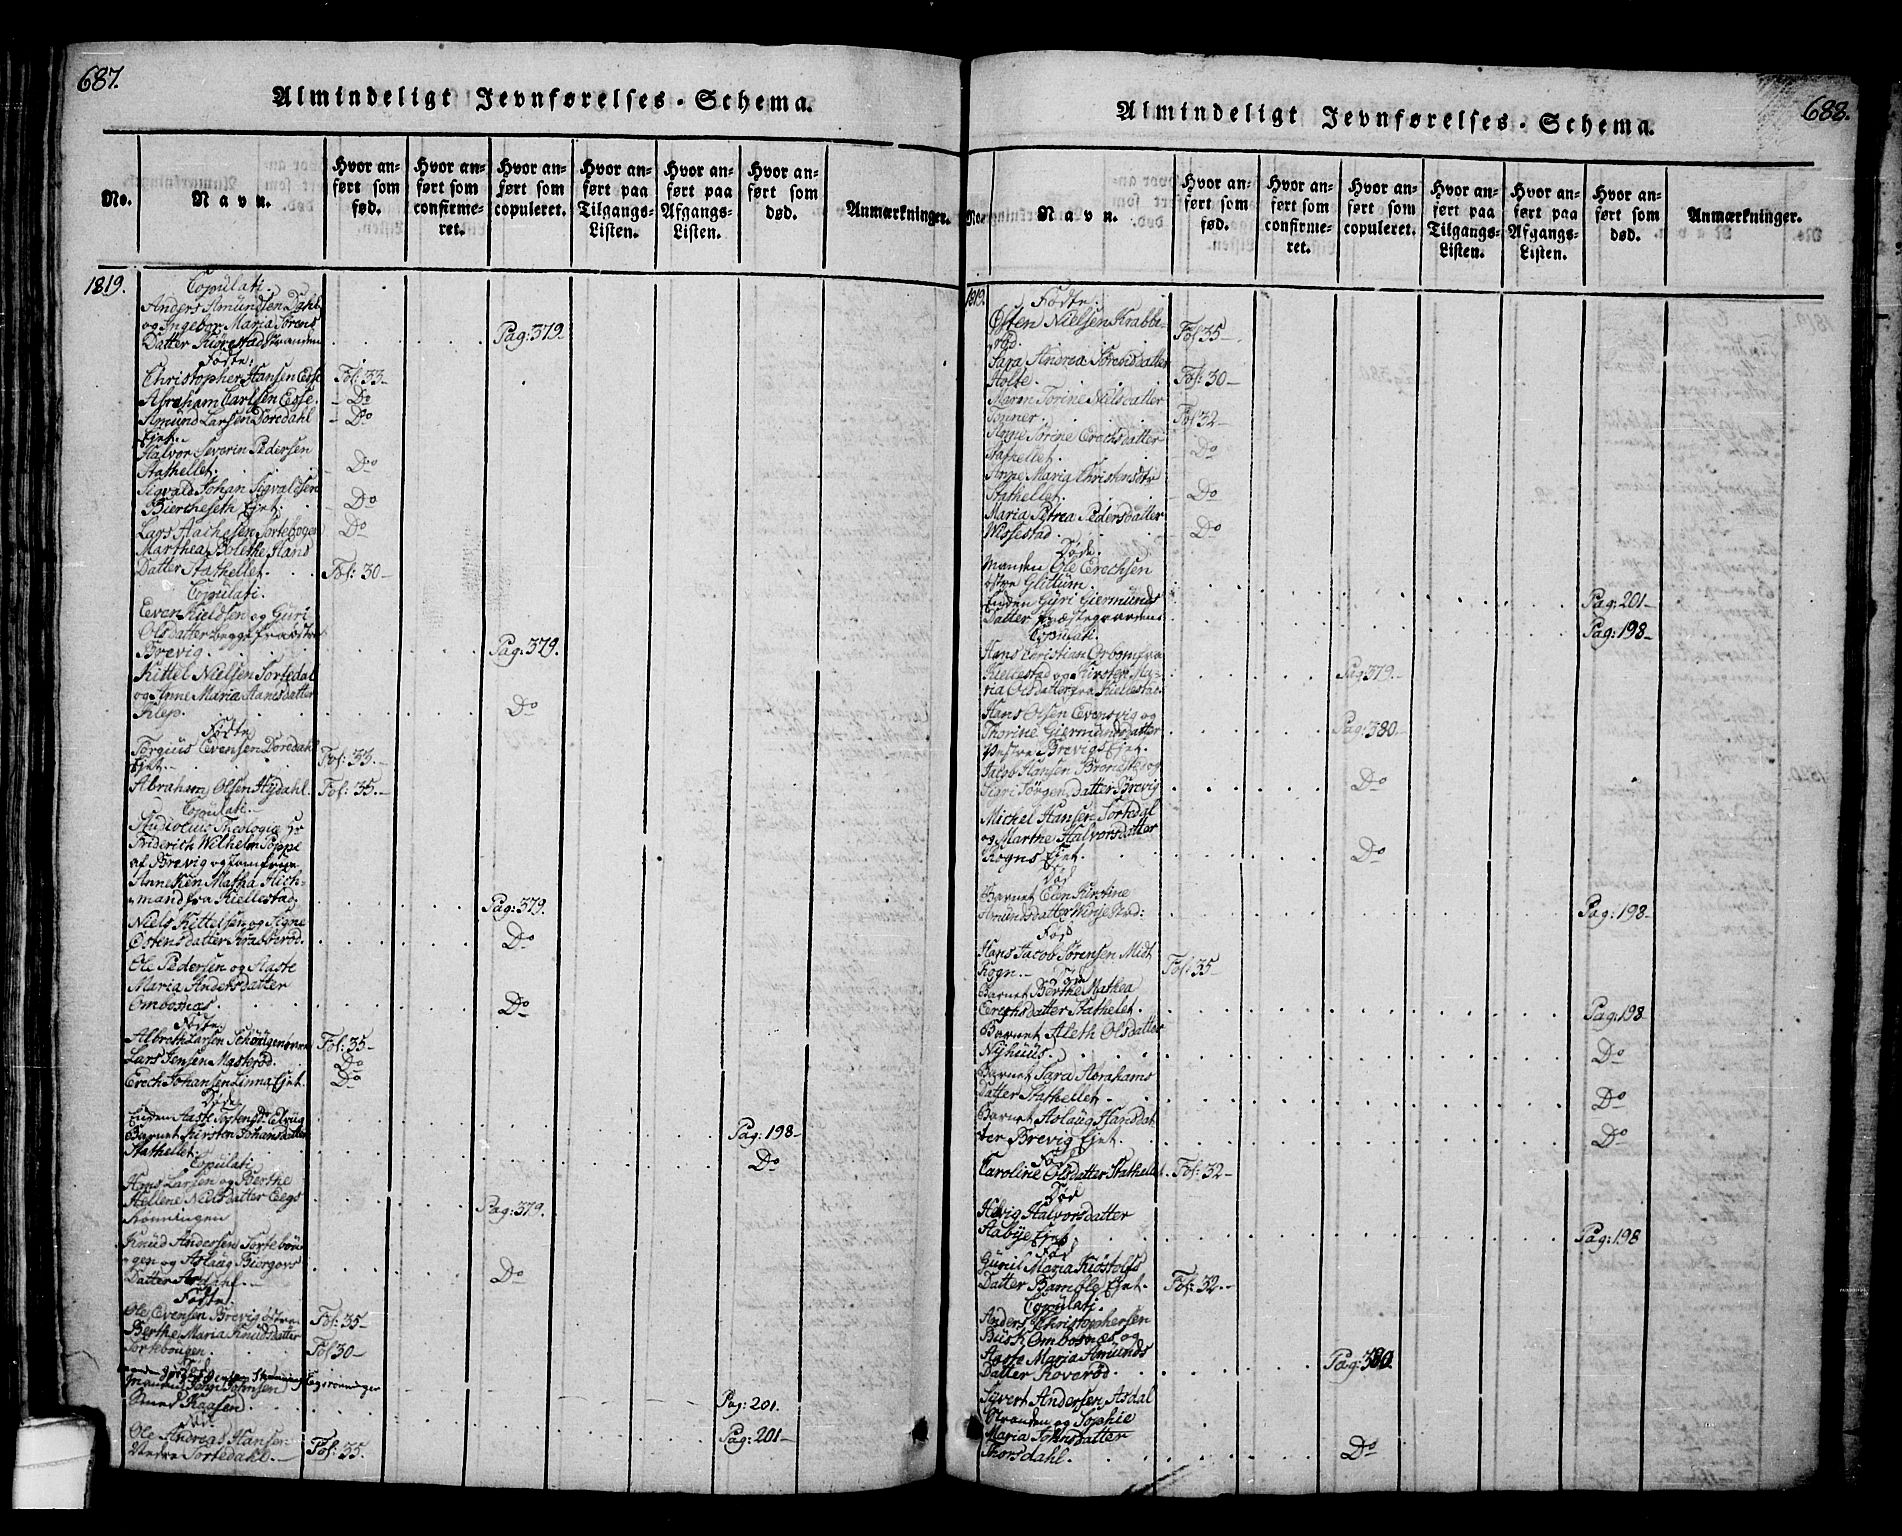 687.
Almindeligt Jevnførelses-Schema.
No.
Navn.
Hvor anført som fød.
Hvor anført som confirmeret.
Hvor anført som copuleret.
Hvor anført paa Tilgangs-Listen.
Hvor anført paa Afgangs-Listen.
Hvor anført som død.
Anmærkninger.
1819.
Copulati.
Anders Amundsen Dahl
og Ingebor Maria Sørens
Datter Kjørestad Stranden Pag: 379
Fødte.
Christopher Hansen Esse Fol: 33-
Abraham Carlsen Esse. - Do
Amund Larsen Dordahl - Do
Ejet.
Halvor Severin Pedersen
Stathellet. Do
Sigvald Johan Sigvaldsen
Biercheseth Ejet. Do
Lars Aachesen Sortebogen Do
Marthea Bolethe Hans
Datter Stathellet. Fol: 30-
Copulati.
Even Kieldsen og Guri
Olsdatter begge fra østre
Brevig. Pag: 379.
Kittel Nielsen Sortedal
og Anne Maria Hansdatter
Klep. Do
Fødte
Torgius Evensen Dordahl
Ejet. Fol: 33.-
Abraham Olsen Hydahl. Fol: 35.-
Copulati.
Studiosus Theologiæ Hr
Friderith Wilhelm Poppe
af Brevig og Jomfrue
Anneken Matha Hich-
mand fra Kiellestad Pag: 379.
Niels Kittelsen og Signe
Østensdatter Krabberød. Do
Ole Pedersen og Aaste
Maria Andersdatter
Ombosnæs. Do
Fødte
Albreth Larsen Schougen Fol: 35-
Lars Jensen Masterød. Do
Erech Johansen Linna Ejet. Do
Døde
Enken Aaste
Barnet Kirsten Johansdatter Pag: 198-
Stathellet. Do
Copulati
Hans Larsen og Berthe
Hellene Nielsdatter Eegs
Rønningen Pag: 379.
Knud Andersen Sortebou-
gen og Aslaug Biørgovs
Datter Asdahl. Do
Fødte.
Ole Evensen Brevig østre. Fol: 35-
Berthe Maria Knudsdatter
Sortebougen. Fol 30-
Død
Pag: 201.
Ole Andreas Hansen Pag: 201-
Sortedahl.- Fol: 35.
688.
Almindeligt Jevnførelses-Schema.
No.
Navn.
Hvor anført som fød.
Hvor anført som confirmeret.
Hvor anført som copuleret.
Hvor anført paa Tilgangs-Listen.
Hvor anført paa Afgangs-Listen.
Hvor anført som død.
Anmærkninger.
1819.
Fødte.
Østen Nielsen Krabbe-
rød. Fol 35-
Sara Andrea Sørensdatter
Holte. Fol: 30-
Maren Torine Nielsdatter
Tonner. Fol 32-
Anne Sørine Erechsdatter
Stathellet. Do
Anne Maria Christensdtr
Stathellet. Do
Maria Petrea Pedersdatter
Wissestad. Do
Døde.
Manden Ole Erechsen
østre Glittum. Pag: 201-
Enken Gyri Giermunds
Datter Præstegaarden Pag: 198-
Copulati.
Hans Christian Orbom fra
Kiellestad og Kirsten Ma-
ria Olsdatter fra Kiellestad Pag 379.-
Hans Olsen Evensvig og
Thorine Giermundsdatter Pag: 380-
østre Brevigs Ejet.
Jacob Hansen og
Sigri Jørgensdatter Brevig Do
Michel Hansen Sortedal
og Marthe Halvorsdatter
Rogns Ejet. Do
Død
Barnet Elen Kirstine
Amundsdatter Pag: 198-
Fød
Hans Jacob Sørensen Midt
Rogn.- Fol 35-
Døde
Barnet Berthe Mathea
Erechsdatter Stathelet. Pag: 198
Barnet Aleth Olsdatter
Nyhuus. Do
Barnet Sara Abrahams
Datter Stathellet. Do
Barnet Aslaug Hansdat
ter Brevig Ejet. Do
Fød
Caroline Olsdatter Stathellet. Fol: 32-
Død
Helvig Halvorsdatter
Aabye Ejet. Pag: 198
Fød
Gunil Maria Kistolfs
Datter Bamble Ejet. Fol: 32.-
Copulati.
Anders Christophersen
Busk Ombosnæs og
Aaste Maria Amunds
Datter Roverød Pag: 380.
Syvert Andersen Asdal
Stranden og Sophie
Maria Johnsdatter
Thorsdahl. Do